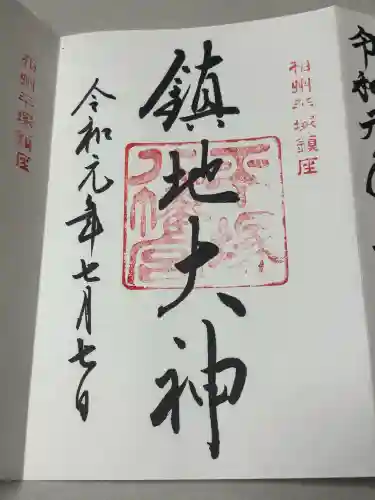 相州平塚鎮座
鎮地大神
令和元年七月七日
平塚八幡宮
相州平塚鎮座
令和元